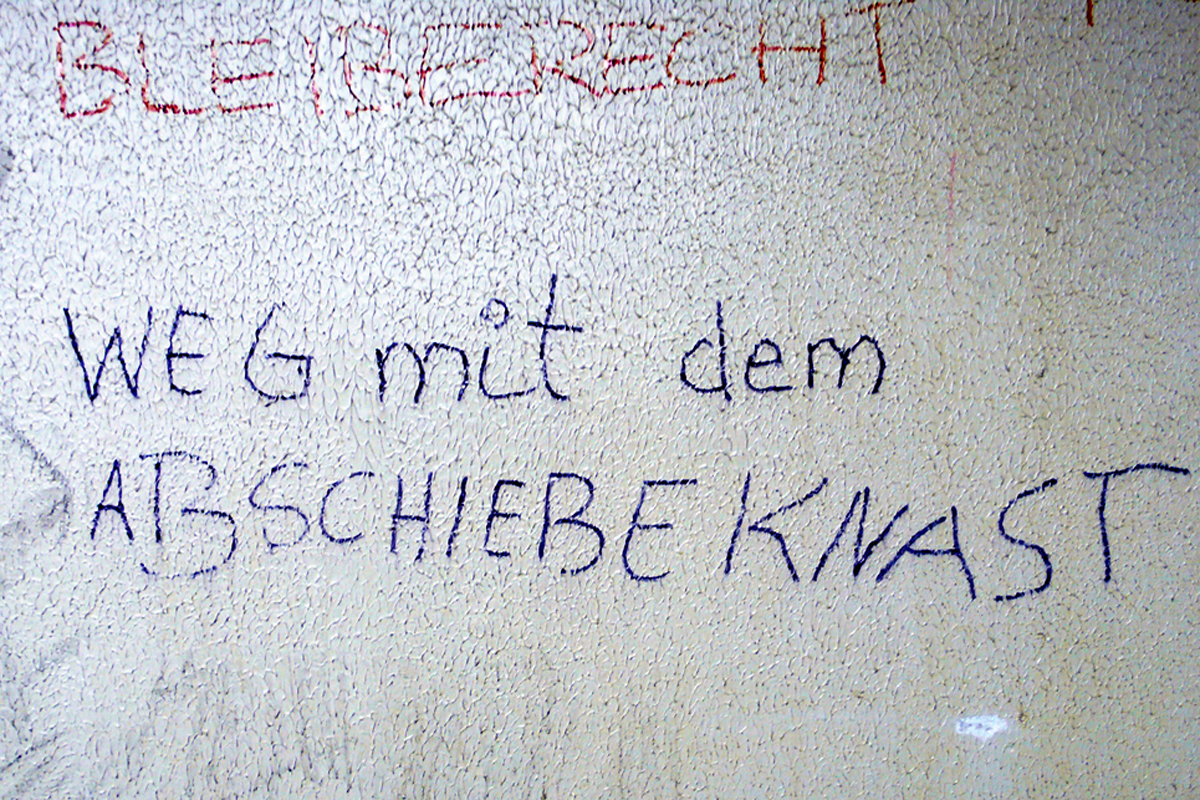 BLEIBERECHT
WEG mit dem
ABSCHIEBEKNAST